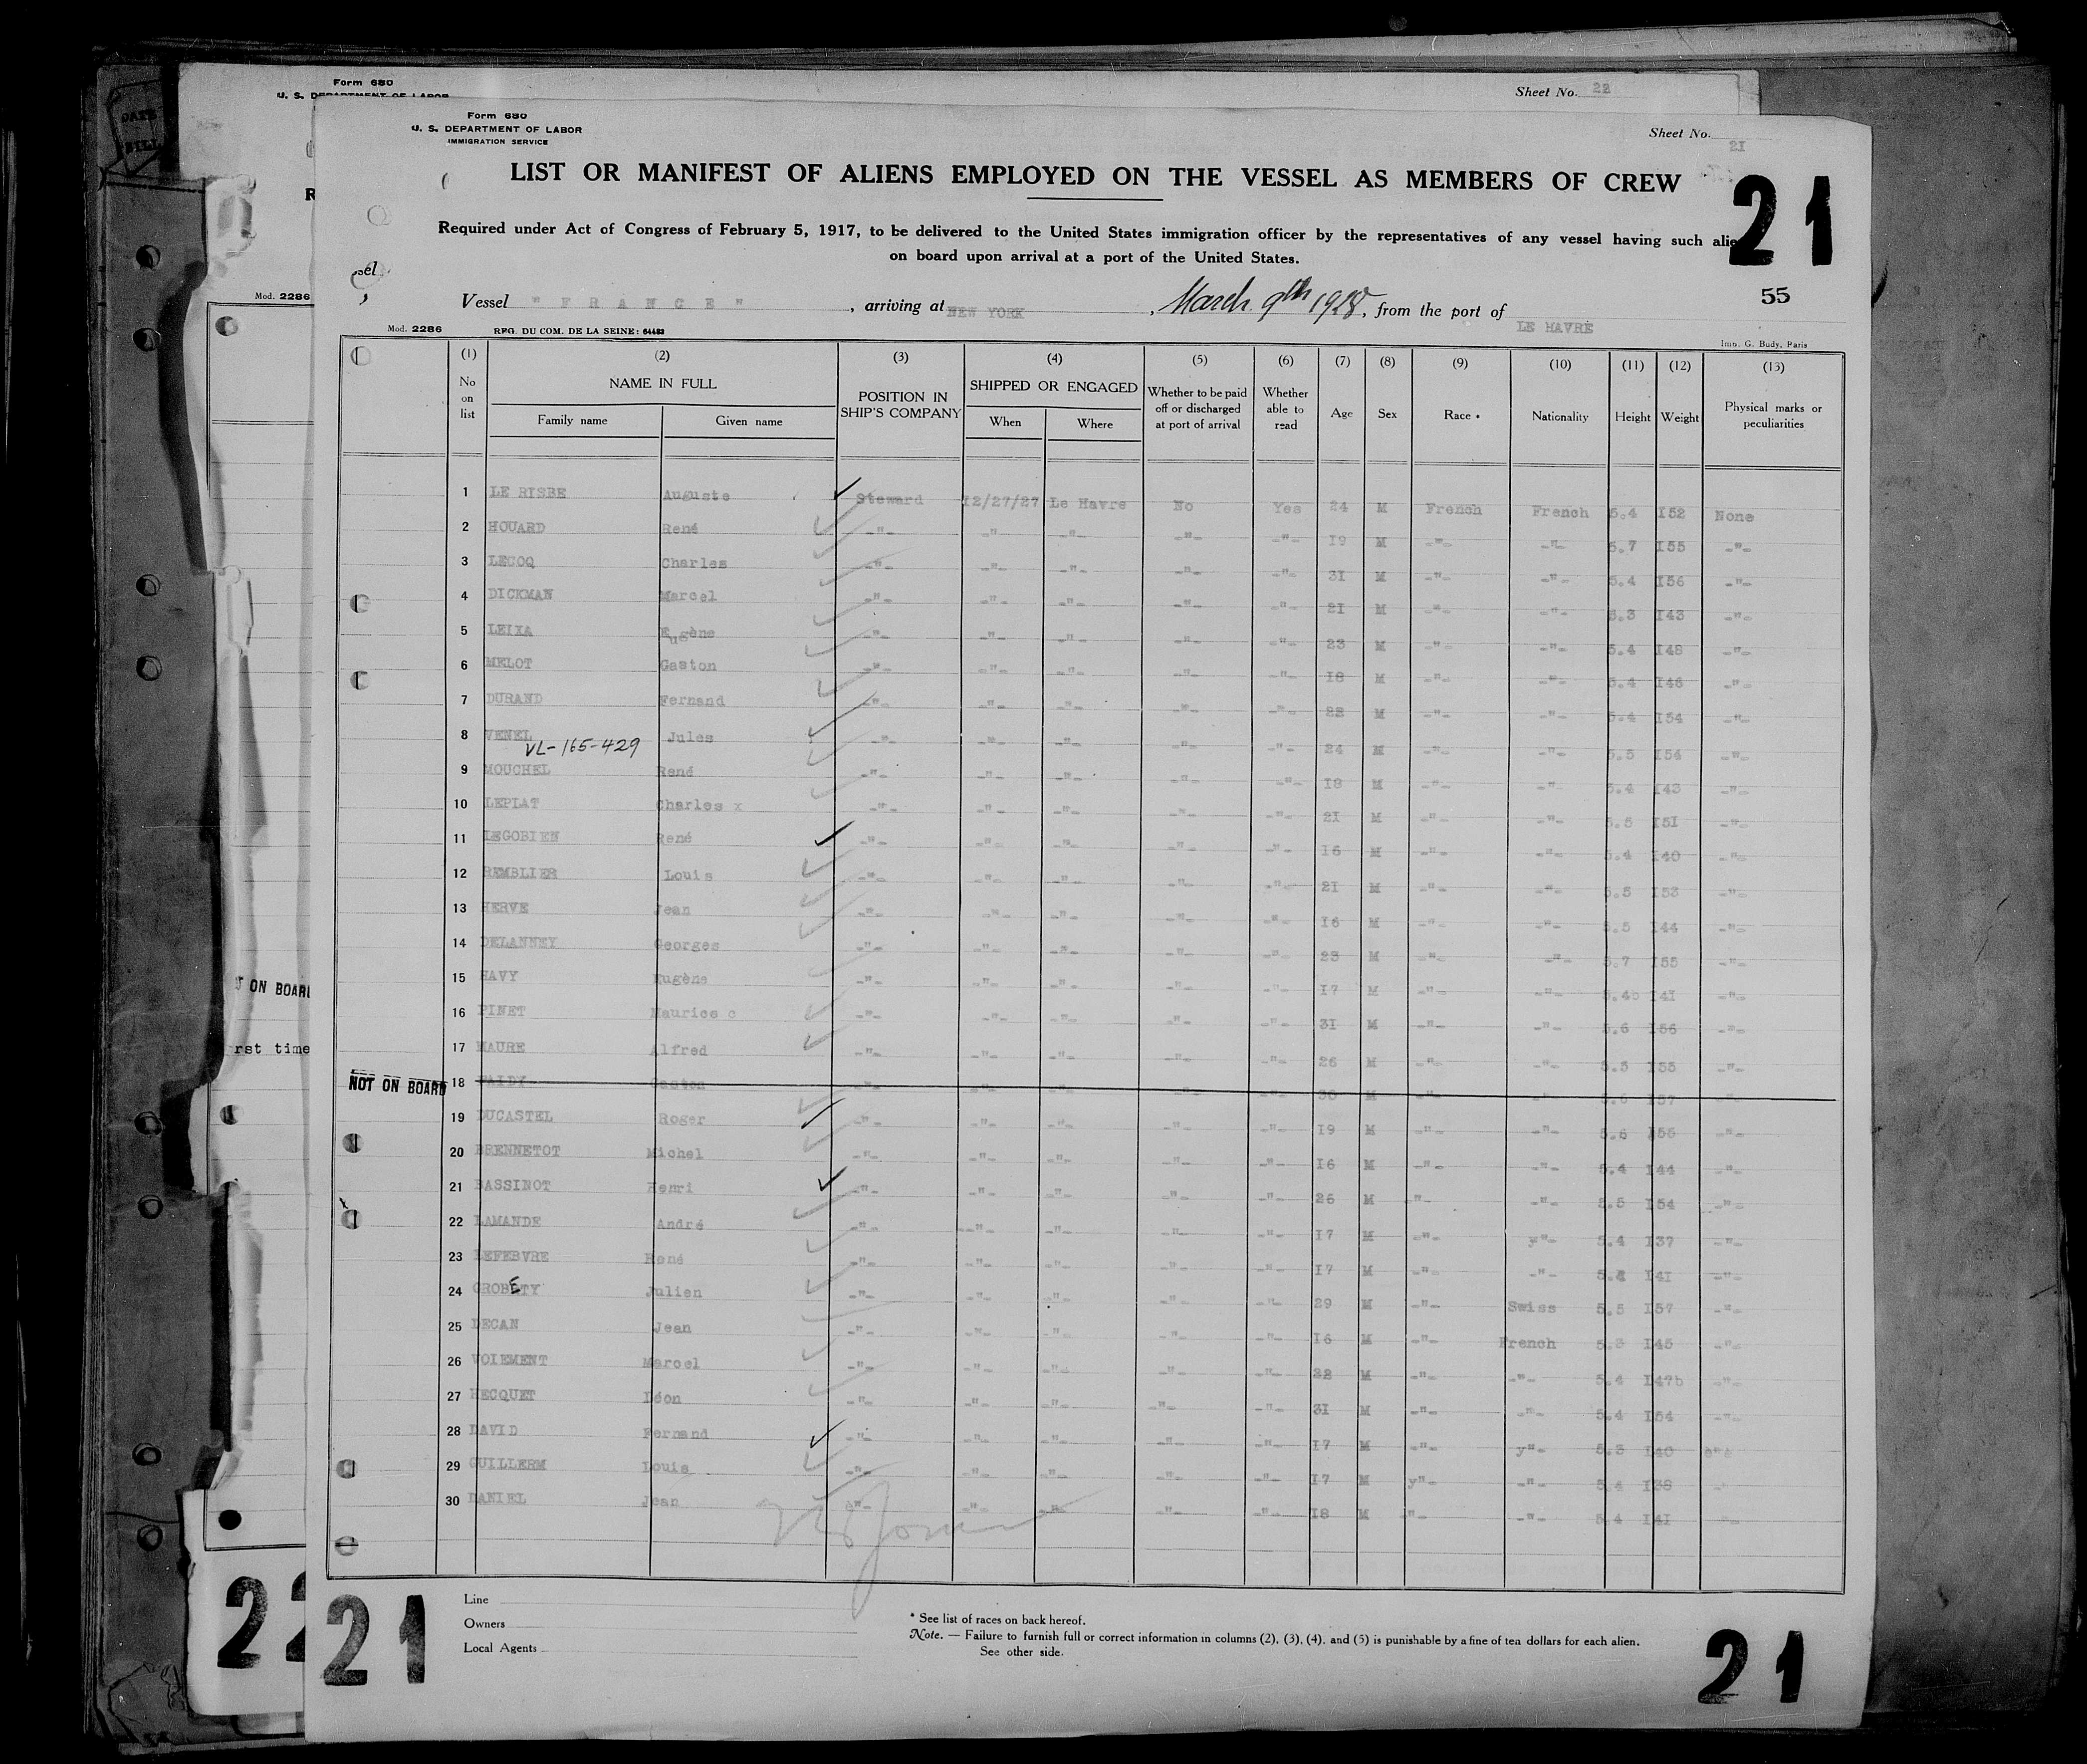 Form 680
U. S. DEPARTMENT OF LABOR
Sheet No. 22
Form 680
U. S. DEPARTMENT OF LABOR
IMMIGRATION SERVICE
Sheet No.
21
LIST OR MANIFEST OF ALIENS EMPLOYED ON THE VESSEL AS MEMBERS OF CREW
21
Required under Act of Congress of February 5, 1917, to be delivered to the United States immigration officer by the representatives of any vessel having such alie
on board upon arrival at a port of the United States.
55
Vessel "FRANCE", arriving at NEW YORK, March 9th 1928, from the port of LE HAVRE
Mod. 2286
Mod. 2286 REG. DU COM. DE LA SEINE: 64483 Imp. G. Budy, Paris
(1) (2) (3) (4) (5) (6) (7) (8) (9) (10) (11) (12) (13)
No on list NAME IN FULL POSITION IN SHIP'S COMPANY SHIPPED OR ENGAGED Whether to be paid off or discharged at port of arrival Whether able to read Age Sex Race * Nationality Height Weight Physical marks or peculiarities
Family name Given name When Where
1 LE RISBE Auguste Steward 12/27/27 Le Havre No Yes 24 M French French 5.4 152 None
2 HOUARD René -"- -"- -"- -"- -"- 19 M -"- -"- 5.7 155 -"-
3 LECOQ Charles -"- -"- -"- -"- -"- 31 M -"- -"- 5.4 156 -"-
4 DICKMAN Marcel -"- -"- -"- -"- -"- 21 M -"- -"- 5.3 143 -"-
5 LEIXA Eugène -"- -"- -"- -"- -"- 23 M -"- -"- 5.4 148 -"-
6 MELOT Gaston -"- -"- -"- -"- -"- 18 M -"- -"- 5.4 146 -"-
7 DURAND Fernand -"- -"- -"- -"- -"- M -"- -"- 5.4 154 -"-
8 VENEL Jules -"- -"- -"- -"- -"- 24 M -"- -"- 5.5 154 -"-
VL-165-429
9 MOUCHEL René -"- -"- -"- -"- -"- 18 M -"- -"- 5.4 143 -"-
10 LEPLAT Charles x -"- -"- -"- -"- -"- 21 M -"- -"- 5.5 151 -"-
11 LEGOBIEN René -"- -"- -"- -"- -"- 16 M -"- -"- 5.4 140 -"-
12 REMBLIER Louis -"- -"- -"- -"- -"- 21 M -"- -"- 5.5 153 -"-
13 HERVE Jean -"- -"- -"- -"- -"- 16 M -"- -"- 5.5 144 -"-
14 DELANNEY Georges -"- -"- -"- -"- -"- 23 M -"- -"- 5.7 155 -"-
15 HAVY Eugène -"- -"- -"- -"- -"- 17 M -"- -"- 5.4b 141 -"-
16 PINET Maurice c -"- -"- -"- -"- -"- 31 M -"- -"- 5.6 156 -"-
17 MAURE Alfred -"- -"- -"- -"- -"- 26 M -"- -"- 5.5 155 -"-
NOT ON BOARD 18 Gaston -"- -"- -"- -"- -"- 30 M -"- -"- 5.6 157 -"-
19 DUCASTEL Roger -"- -"- -"- -"- -"- 19 M -"- -"- 5.6 155 -"-
20 BRENNETOT Michel -"- -"- -"- -"- -"- 16 M -"- -"- 5.4 144 -"-
21 BASSINOT Henri -"- -"- -"- -"- -"- 26 M "- -"- 5.5 154 -"-
22 LAMANDE André -"- -"- -"- -"- -"- 17 M -"- y"- 5.4 137 -"-
23 LEFEBVRE René -"- -"- -"- -"- -"- 17 M -"- -"- 141 -"-
24 GROBETY Julien -"- -"- -"- -"- -"- 29 M -"- Swiss 5.5 157 -"-
25 DECAN Jean -"- -"- -"- -"- -"- 16 M -"- French 5.3 145 -"-
26 VOIEMENT Marcel -"- -"- -"- -"- -"- M -"- -"- 5.4 147b -"-
27 HECQUET Léon -"- -"- -"- -"- -"- 31 M -"- -"- 5.4 154 -"-
28 DAVID Fernand -"- -"- -"- -"- -"- 17 M -"- y"- 5.3 140
29 GUILLERM Louis -"- -"- -"- -"- -"- 17 M y"- -"- 5.4 138
30 DANIEL Jean -"- -"- -"- -"- -"- 18 M "- -"- 5.4 141
T ON BOARD
rst time
Line
Owners
Local Agents
* See list of races on back hereof.
Note. — Failure to furnish full or correct information in columns (2), (3), (4), and (5) is punishable by a fine of ten dollars for each alien.
See other side.
22
21
21